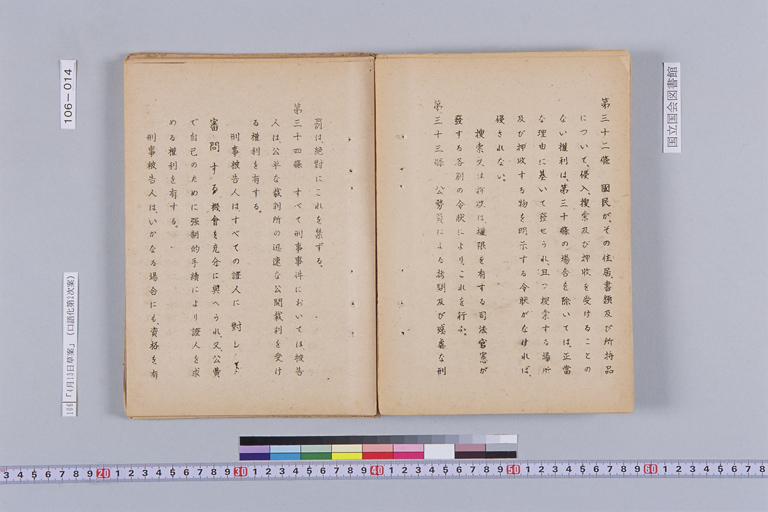 第三十二條　國民が、その住居、書類及び所持品
について、侵入、搜索及び押收を受けることの
ない權利は、第三十條の場合を除いては、正當
な理由に基いて發せられ、且つ搜索する場所
及び押收する物を明示する令狀がなければ、
侵されない。
搜索又は押收は、權限を有する司法官憲が
發する各別の令狀により、これを行ふ。
第三十三條　公務員による拷問及び殘虐な刑
罰は、絶對にこれを禁ずる。
第三十四條　すべて刑事事件においては、被告
人は、公平な裁判所の迅速な公開裁判を受け
る權利を有する。
刑事被告人は、すべての證人に對して、
審問する機會を充分に與へられ、又、公費
で自己のために强制的手續により證人を求
める權利を有する。
刑事被告人は、いかなる場合にも、資格を有
国立国会図書館
106-014
106「4月13日草案」（口語化第2次案）
3 4 5 6 7 8 9 20 1 2 3 4 5 6 7 8 9 30 1 2 3 4 5 6 7 8 9 40 1 2 3 4 5 6 7 8 9 50 1 2 3 4 5 6 7 8 9 60 1 2 3 4 5 6 7 8